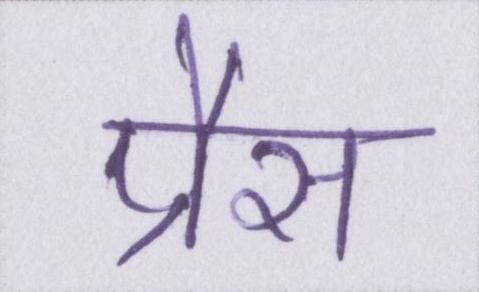 प्रैस